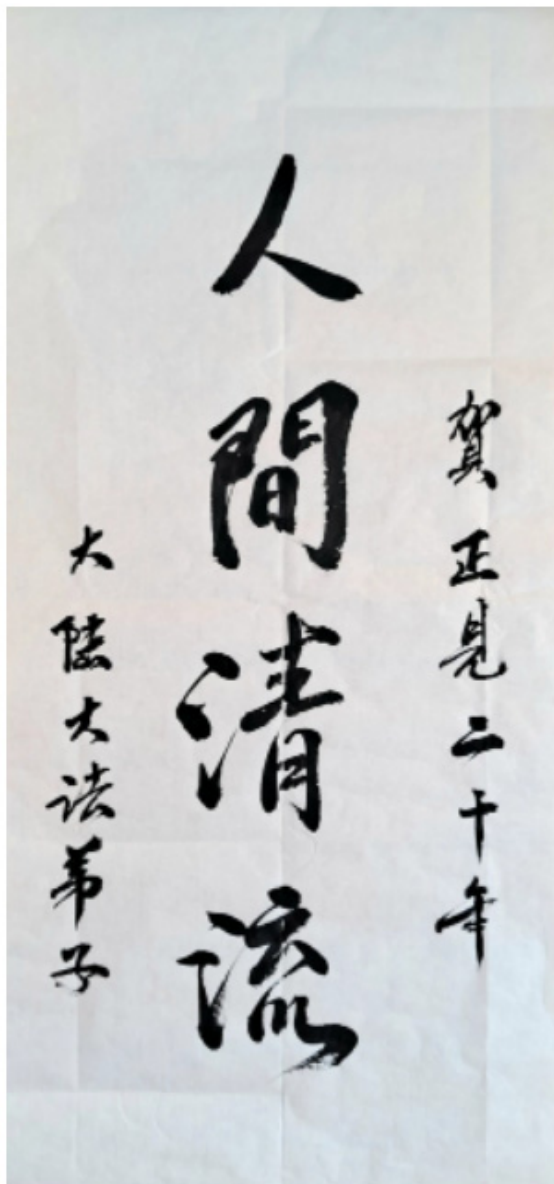 賀正見二十年
人間清流
大陸大法弟子